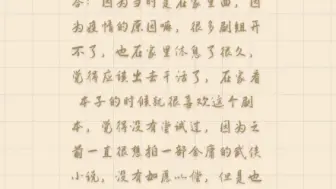 答：因为当时是在家里面，因
为疫情的原因嘛，很多剧组开
不了，也在家里休息了很久，
觉得应该出去干活了，在家看
本子的时候就很喜欢这个剧
本，觉得没有尝试过，因为之
前一直很想拍一部金庸的武侠
小说，没有如愿以偿，但是也